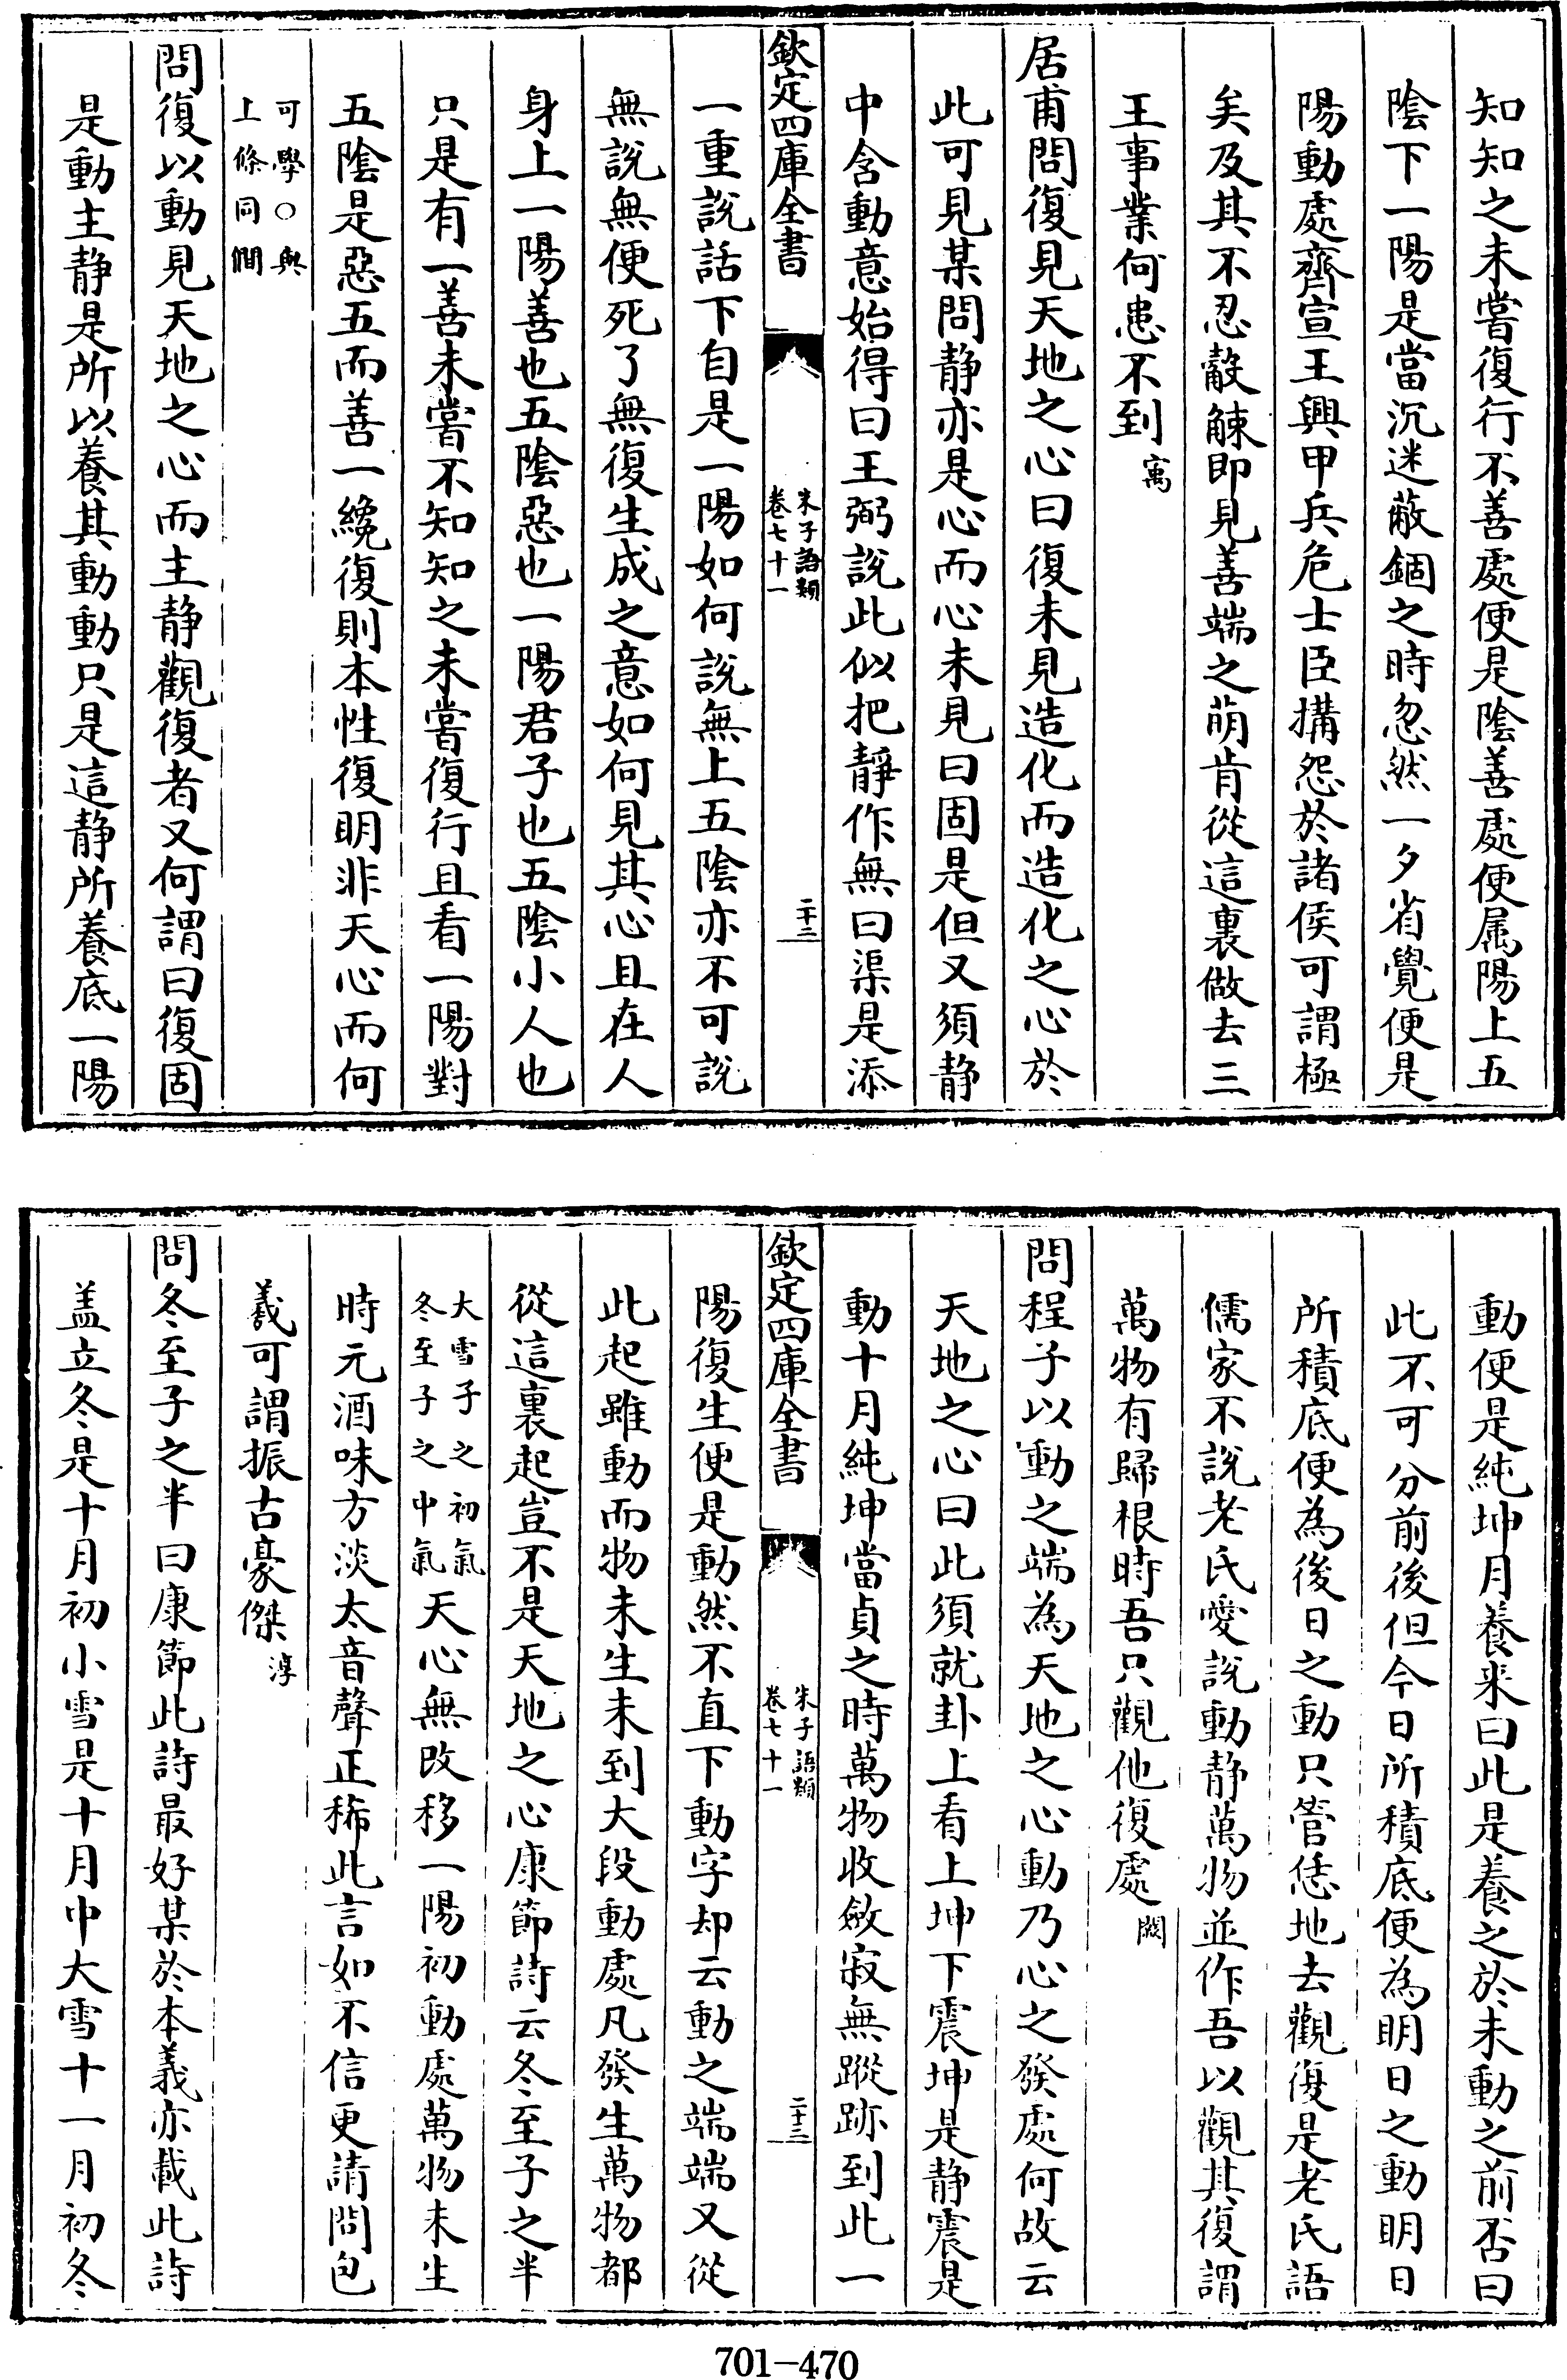 知知之未嘗復行不善處便是陰善處便属陽上五
陰下一陽是當沉迷蔽錮之時忽然一夕省覺便是
陽動處齊宣王興甲兵危士臣搆怨於諸侯可謂極
矣及其不忍觳觫即見善端之萌肯從這裏做去三
王事業何患不到㝢
居甫問復見天地之心曰復未見造化而造化之心於
此可見某問静亦是心而心未見曰固是但又須静
中含動意始得曰王弼說此似把靜作無曰渠是添
欽定四庫全書
朱子語類
卷七十一
二十二
一重說話下自是一陽如何說無上五陰亦不可說
無說無便死了無復生成之意如何見其心且在人
身上一陽善也五陰惡也一陽君子也五陰小人也
只是有一善未嘗不知知之未嘗復行且看一陽對
五陰是惡五而善一纔復則本性復明非天心而何
可學○與
上條同聞
問復以動見天地之心而主静觀復者又何謂曰復固
是動主静是所以養其動動只是這静所養底一陽
動便是純坤月養来曰此是養之於未動之前否曰
此不可分前後但今日所積底便為明日之動明日
所積底便為後日之動只管恁地去觀復是老氏語
儒家不說老氏愛說動静萬物並作吾以觀其復謂
萬物有歸根時吾只觀他復處閎
問程子以動之端為天地之心動乃心之發處何故云
天地之心曰此須就卦上看上坤下震坤是静震是
動十月純坤當貞之時萬物收斂寂無蹤跡到此一
欽定四庫全書
朱子語類
卷七十一
二十三
陽復生便是動然不直下動字却云動之端端又從
此起雖動而物未生未到大段動處凡發生萬物都
從這裏起豈不是天地之心康節詩云冬至子之半
大雪子之初氣
冬至子之中氣
天心無改移一陽初動處萬物未生
時元酒味方淡太音聲正稀此言如不信更請問包
羲可謂振古豪傑淳
問冬至子之半曰康節此詩最好某於本義亦載此詩
盖立冬是十月初小雪是十月中大雪十一月初冬
701-470